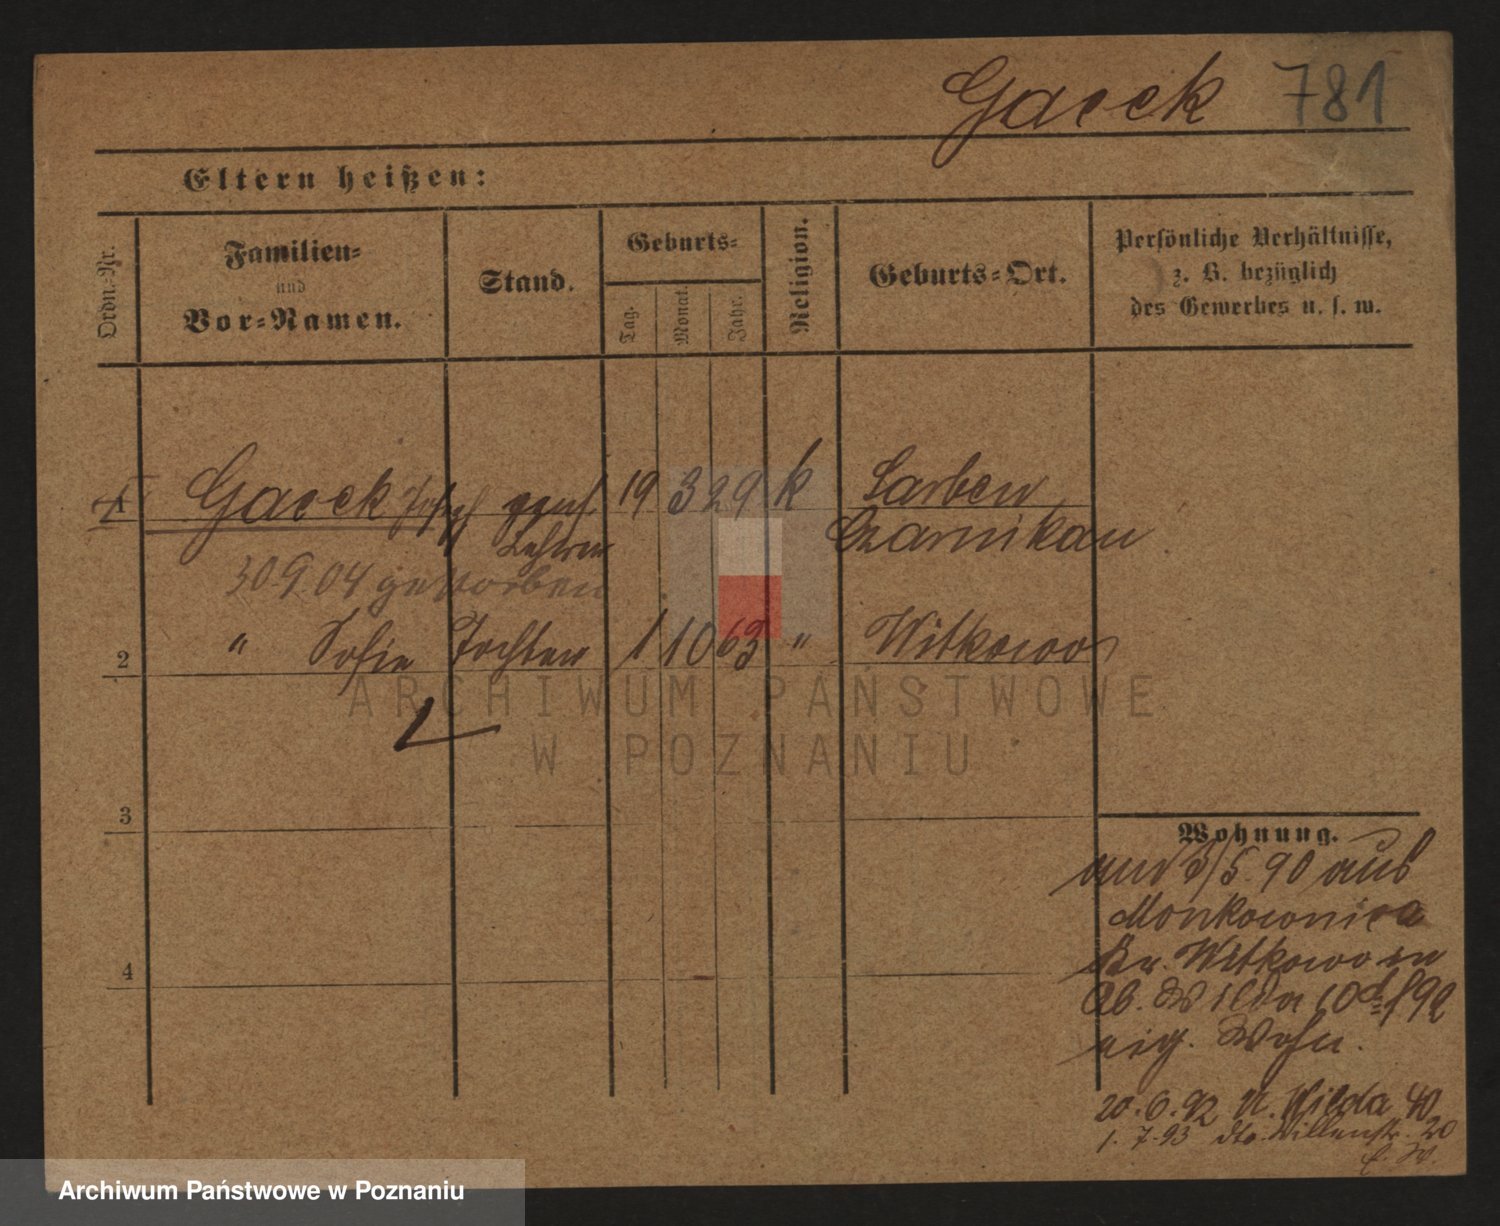 Gacek 781
Eltern heißen:
Ordn.-Nr.
Familien-
und
Vor-Namen.
Stand.
Geburts-
Tag.
Monat.
Jahr.
Religion.
Geburts-Ort.
Persönliche Verhältnisse,
z. B. bezüglich
des Gewerbes u. s. w.
1 Gacek Joseph 19 3 29 k Sarben
Lehrer Czarnikau
30.9.04 gestorben
2 " Sofie Tochter 1 10 63 " Witkowo
ARCHIWUM PAŃSTWOWE
W POZNANIU
3
4
Wohnung.
3/5 90 aus
Monkownica
Kr. Witkowo in
eig. Wohn.
20.6.92 U. Wilda 40
1.7.93 dto. 20
Archiwum Państwowe w Poznaniu